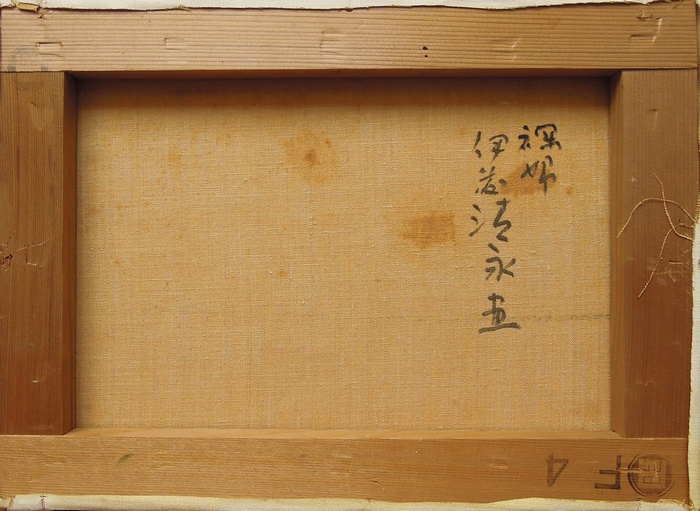 裸婦
伊藤清永画
F4